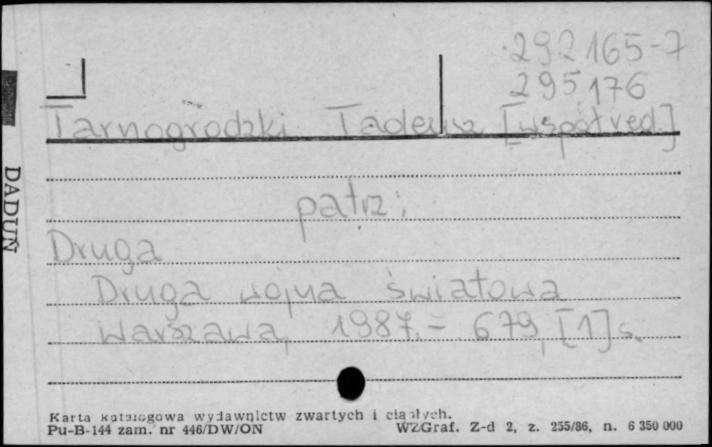 292165-7
295176
Tarnogrodzki Tadeusz [współred.]
patrz:
Druga
Druga wojna światowa
Warszawa, 1987. - 679, [1] s.
DADUŃ
Karta katalogowa wydawnictw zwartych i ciągłych.
Pu-B-144 zam. nr 446/DW/ON WZGraf. Z-d 2, z. 255/86, n. 6 350 000